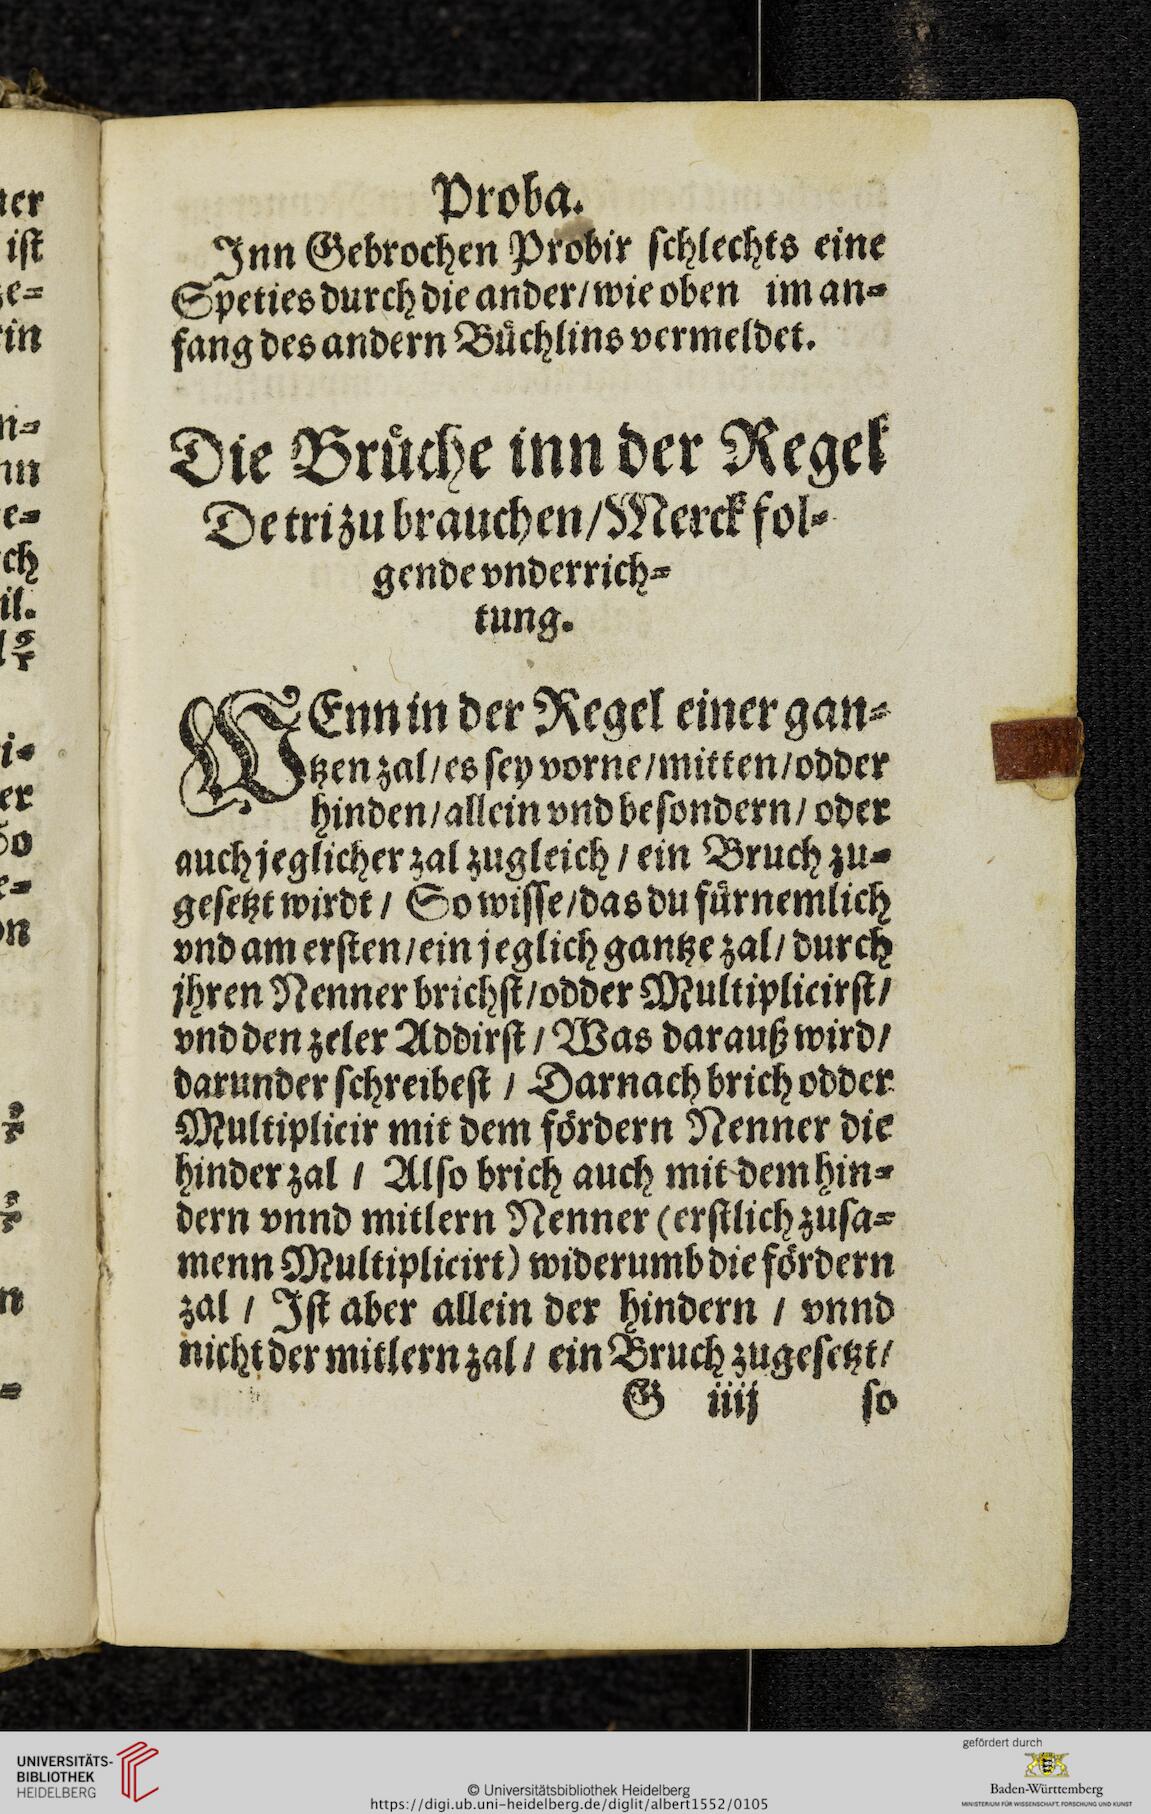 Proba.
Jnn Gebrochen Probir schlechts eine
Speties durch die ander / wie oben im an=
fang des andern Bůchlins vermeldet.
Die Brůche inn der Regel
De tri zu brauchen / Merck fol=
gende vnderrich=
tung.
WEnn in der Regel einer gan=
tzen zal / es sey vorne / mitten / odder
hinden / allein vnd besondern / oder
auch jeglicher zal zugleich / ein Bruch zu=
gesetzt wirdt / So wisse / das du fůrnemlich
vnd am ersten / ein jeglich gantze zal / durch
jhren Nenner brichst / odder Multiplicirst /
vnd den zeler Addirst / Was darauß wird /
darunder schreibest / Darnach brich odder
Multiplicir mit dem fördern Nenner die
hinder zal / Also brich auch mit dem hin=
dern vnnd mitlern Nenner (erstlich zusa=
menn Multiplicirt) widerumb die fördern
zal / Jst aber allein der hindern / vnnd
nicht der mitlern zal / ein Bruch zugesetzt /
G iiij so
UNIVERSITÄTS-
BIBLIOTHEK
HEIDELBERG
© Universitätsbibliothek Heidelberg
https://digi.ub.uni-heidelberg.de/diglit/albert1552/0105
gefördert durch
Baden-Württemberg
MINISTERIUM FÜR WISSENSCHAFT, FORSCHUNG UND KUNST